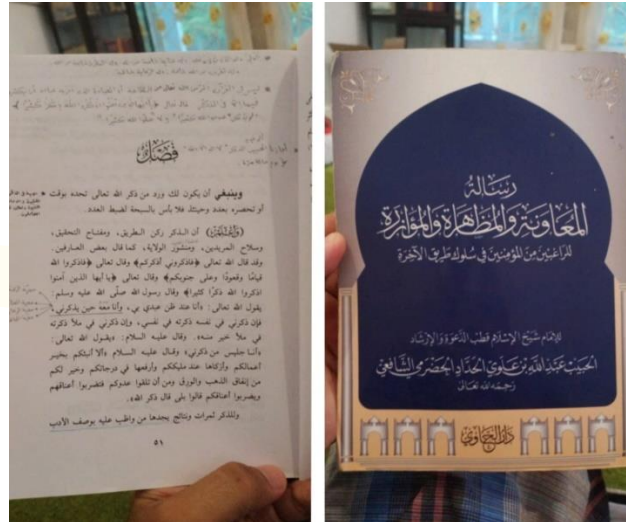 فصل
وينبغي أن يكون لك ورد من ذكر الله تعالى تحده بوقت
أو تحصره بعدد وحينئذ فلا بأس بالسبحة لضبط العدد.
(واعلم) أن الذكر ركن الطريق، ومفتاح التحقيق،
وسلاح المريدين، ومنشور الولاية، كما قال بعض العارفين.
وقد قال الله تعالى ﴿فاذكروني أذكركم﴾ وقال تعالى ﴿فاذكروا الله
قيامًا وقعودًا وعلى جنوبكم﴾ وقال تعالى ﴿يا أيها الذين آمنوا
اذكروا الله ذكرًا كثيرًا﴾ وقال رسول الله صلى الله عليه وسلم:
يقول الله تعالى: «أنا عند ظن عبدي بي، وأنا معه حين يذكرني،
فإن ذكرني في نفسه ذكرته في نفسي، وإن ذكرني في ملأ ذكرته
في ملأ خير منه». وقال عليه السلام: «يقول الله تعالى:
«أنا جليس من ذكرني» وقال عليه السلام «ألا أنبئكم بخير
أعمالكم وأزكاها عند مليككم وأرفعها في درجاتكم وخير لكم
من إنفاق الذهب والورق ومن أن تلقوا عدوكم فتضربوا أعناقهم
ويضربوا أعناقكم قالوا بلى قال ذكر الله».
وللذكر ثمرات ونتائج يجدها من واظب عليه بوصف الأدب
٥١
رسالة
المعاونة والمظاهرة والمؤازرة
للراغبين من المؤمنين في سلوك طريق الآخرة
للإمام شيخ الإسلام قطب الدعوة والإرشاد
الحبيب عبد الله بن علوي الحداد الحضرمي الشافعي
رحمه الله تعالى
دار الحاوي